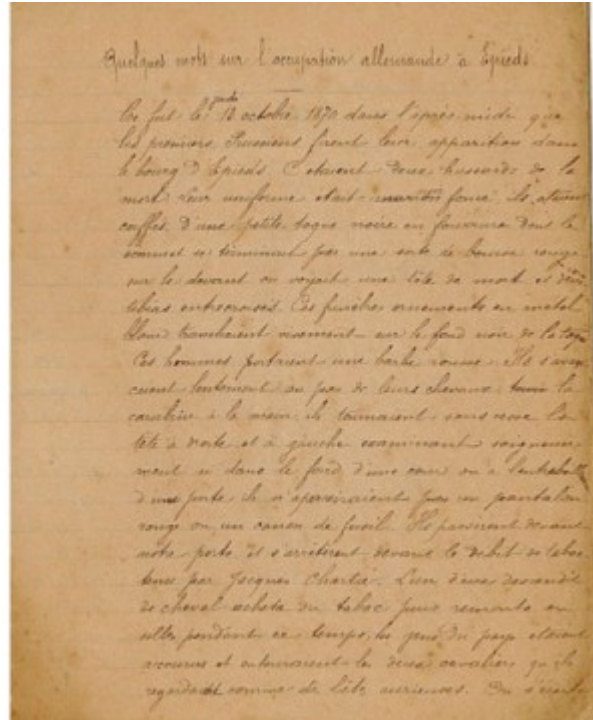 Quelques mots sur l'occupation allemande à Epieds
Ce fut le 13 octobre 1870 dans l'après midi que
les premiers Prussiens firent leur apparition dans
le bourg d'Epieds. C'étaient deux hussards de la
mort. Leur uniforme était marron foncé, ils étaient
coiffés d'une petite toque noire en fourrure dont le
sommet se terminait par une sorte de bourse rouge
sur le devant on voyait une tête de mort et deux
tibias entrecroisés. Ces funèbres ornements en métal
blanc tranchaient vivement sur le fond noir de la toque
Ces hommes portaient une barbe rousse. Ils s'avan
çaient lentement au pas de leurs chevaux la
carabine à la main, ils tournaient sans cesse la
tête à droite et à gauche examinant soigneuse
ment si dans le fond d'une cour ou à l'entrebaill
d'une porte ils n'apercevraient pas un pantalon
rouge ou un canon de fusil. Ils passèrent devant
notre porte et s'arrêtèrent devant le débit de tabac
tenu par Jacques Chartier. L'un d'eux descendit
de cheval acheta du tabac puis remonta en
selle, pendant ce temps, les gens du pays étaient
accourus et entouraient les deux cavaliers qu'ils
regardaient comme de bêtes curieuses. On s'